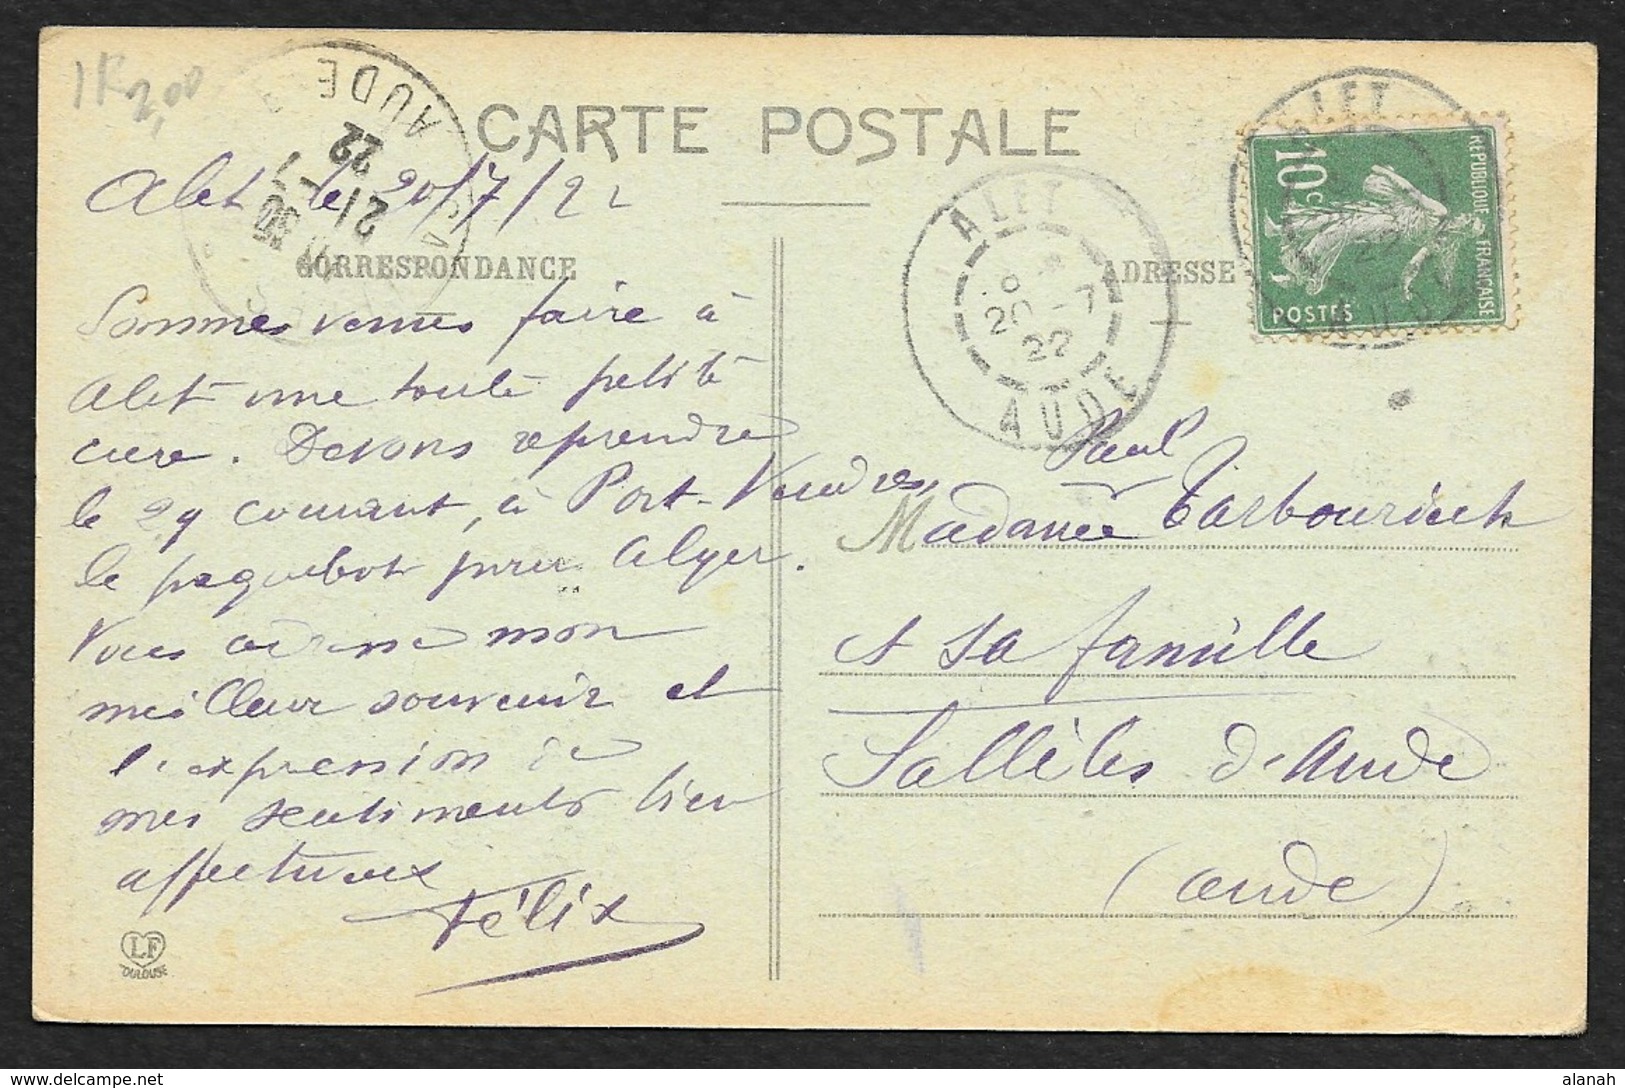 1K 2,00
CARTE POSTALE
AUDE
21-7
22
Alet le 20/7/22
CORRESPONDANCE
Sommes venus faire à
Alet une toute petite
cure. Devons reprendre
le 29 courant, à Port-Vendres,
le paquebot pour Alger.
Vous adresse mon
meilleur souvenir et
l'expression de
mes sentiments bien
affectueux
Félix
LF
TOULOUSE
ALET
20-7
22
AUDE
ADRESSE
ALET
22
AUDE
10c
REPUBLIQUE FRANÇAISE
POSTES
Paul
Madame Tarbouriech
et sa famille
Sallèles d'Aude
(Aude)
alanah